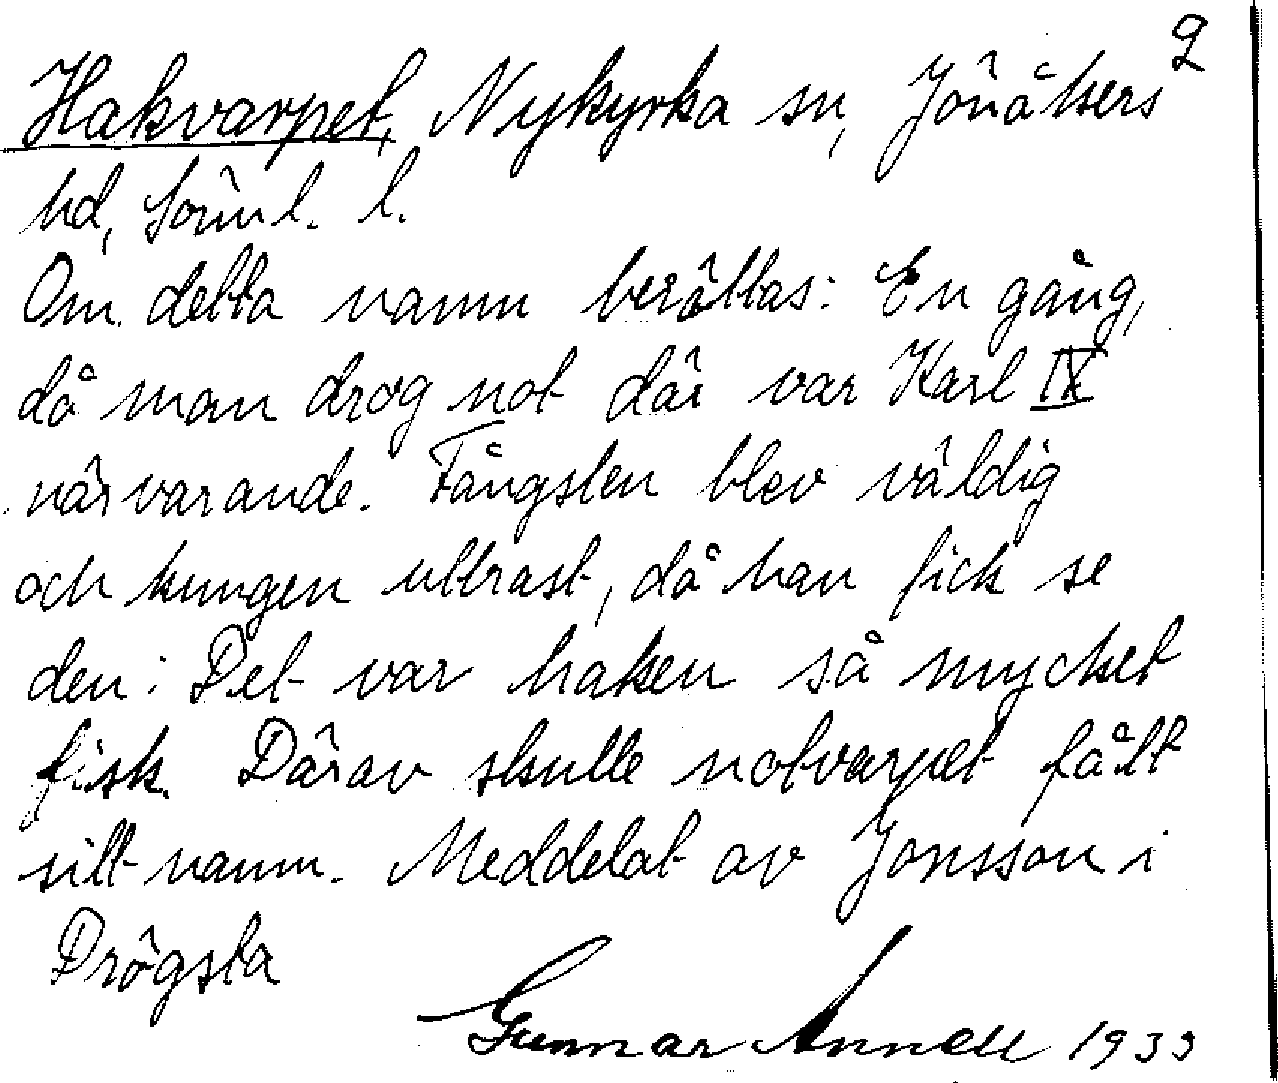 2
Hakvarpet, Nykyrka sn, Jönåkers
hd, Sörml. l.
Om detta namn berättas: En gång,
då man drog not där var Karl IX
närvarande. Fångsten blev väldig
och kungen utbrast, då han fick se
den: Det var haken så mycket
fisk. Därav skulle notvarpet fått
sitt namn. Meddelat av Jonsson i
Drögsta
Gunnar Annell 1933